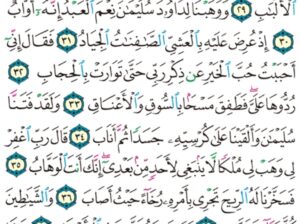 ٱلۡأَلۡبَٰبِ ٢٩ وَوَهَبۡنَا لِدَاوُۥدَ سُلَيۡمَٰنَۚ نِعۡمَ ٱلۡعَبۡدُ إِنَّهُۥٓ أَوَّابٌ
٣٠ إِذۡ عُرِضَ عَلَيۡهِ بِٱلۡعَشِيِّ ٱلصَّٰفِنَٰتُ ٱلۡجِيَادُ ٣١ فَقَالَ إِنِّيٓ
أَحۡبَبۡتُ حُبَّ ٱلۡخَيۡرِ عَن ذِكۡرِ رَبِّي حَتَّىٰ تَوَارَتۡ بِٱلۡحِجَابِ ٣٢
رُدُّوهَا عَلَيَّۖ فَطَفِقَ مَسۡحَۢا بِٱلسُّوقِ وَٱلۡأَعۡنَاقِ ٣٣ وَلَقَدۡ فَتَنَّا
سُلَيۡمَٰنَ وَأَلۡقَيۡنَا عَلَىٰ كُرۡسِيِّهِۦ جَسَدٗا ثُمَّ أَنَابَ ٣٤ قَالَ رَبِّ ٱغۡفِرۡ
لِي وَهَبۡ لِي مُلۡكٗا لَّا يَنۢبَغِي لِأَحَدٖ مِّنۢ بَعۡدِيٓۖ إِنَّكَ أَنتَ ٱلۡوَهَّابُ ٣٥
فَسَخَّرۡنَا لَهُ ٱلرِّيحَ تَجۡرِي بِأَمۡرِهِۦ رُخَآءً حَيۡثُ أَصَابَ ٣٦ وَٱلشَّيَٰطِينَ